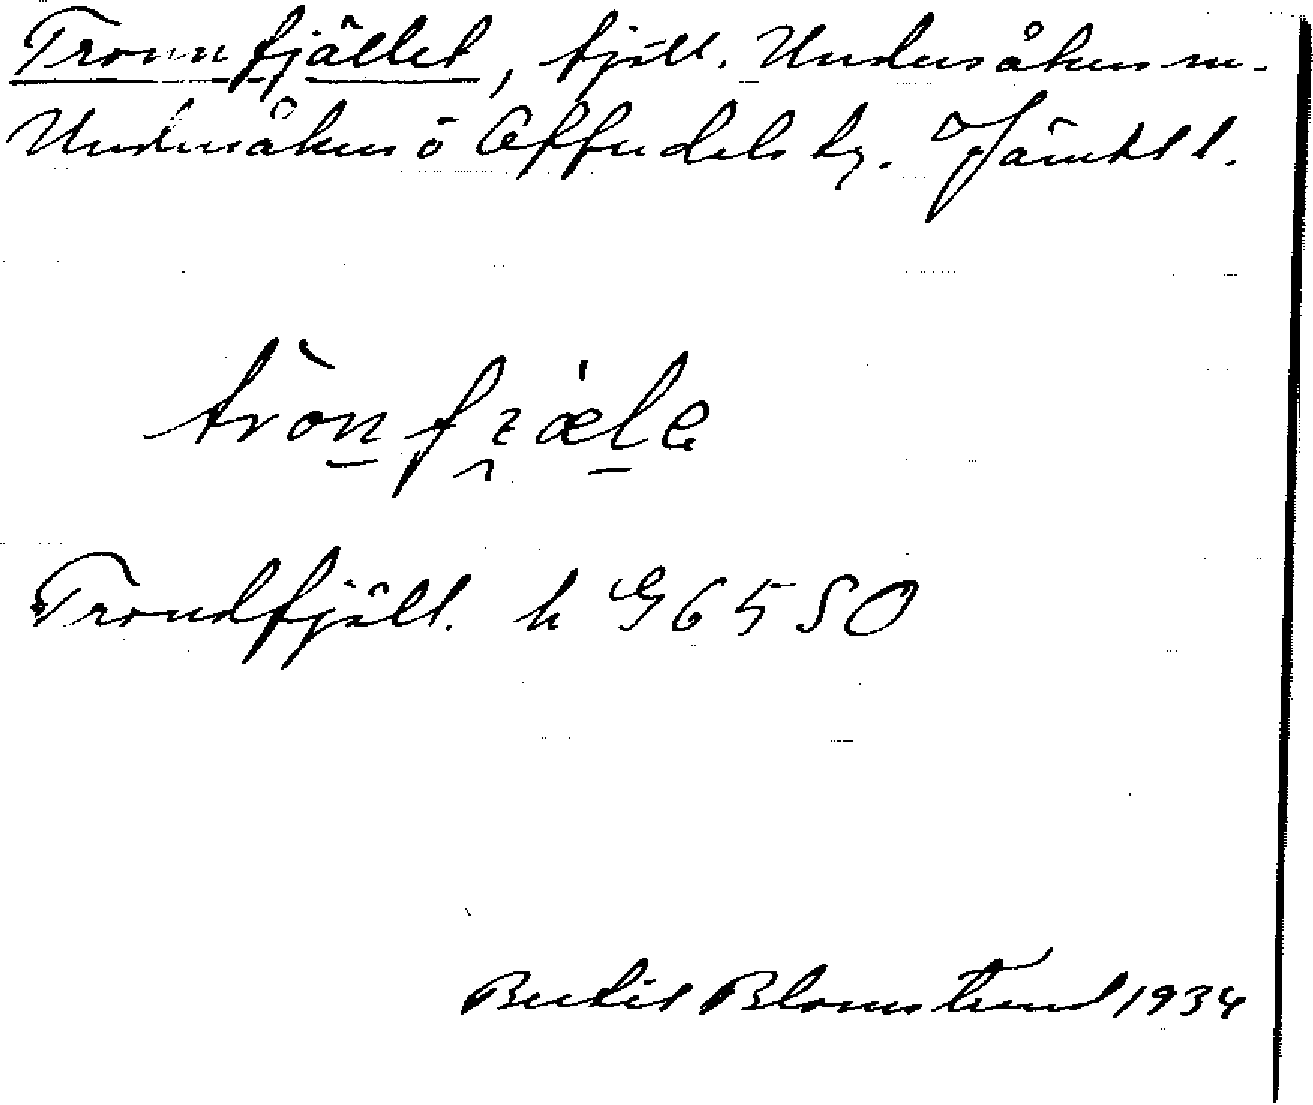 Tronnfjället, fjäll. Undersåkers sn.
Undersåkers o Offerdals tg. Jämtl l.
trònfjæ̍le
Trondfjäll. h G 6550
Bertil Blomstrand 1934